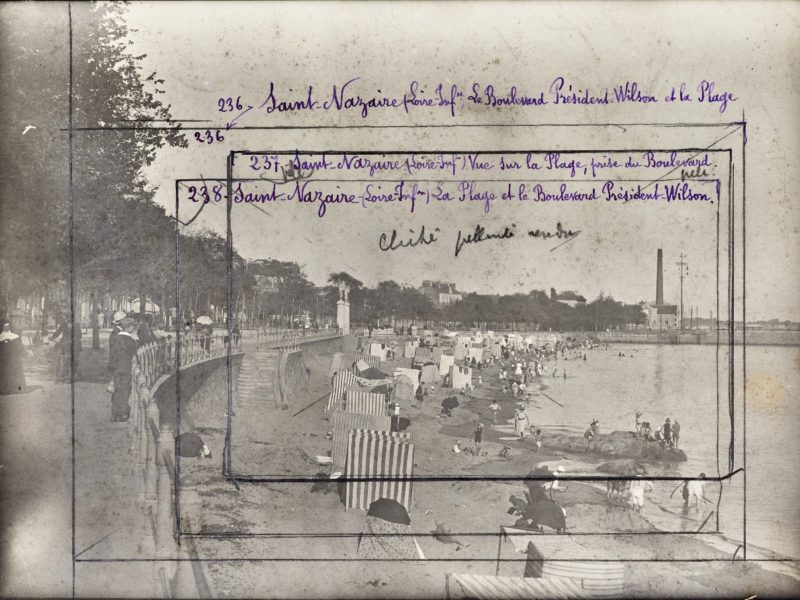 236_ Saint-Nazaire (Loire-Infre) Le Boulevard Président-Wilson et la Plage
236
237_ Saint-Nazaire (Loire-Infre) Vue sur la Plage, prise du Boulevard.
238_ Saint-Nazaire (Loire-Infre) La Plage et le Boulevard Président-Wilson.
Cliché